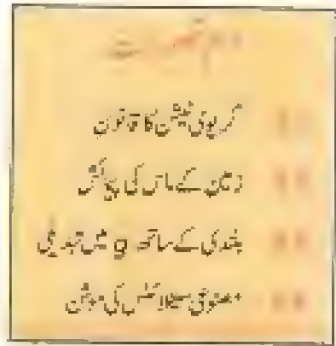 اہم تصورات
گریوی ٹیشن کا قانون
زمین کے ماس کی پیمائش
بلندی کے ساتھ g میں تبدیلی
مصنوعی سیٹلائٹس کی موشن